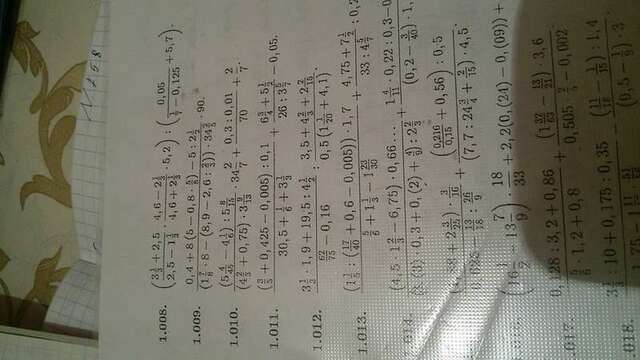 N 258
1.008. ((3 1/3 + 2,5)/(2,5 − 1 1/3) · (4,6 − 2 1/3)/(4,6 + 2 1/3) · 5,2) : (0,05/(1/7 − 0,125) + 5,7).
1.009. (0,4 + 8(5 − 0,8 · 5/8) − 5 : 2 1/2)/((1 7/8 · 8 − (8,9 − 2,6 : 2/3)) · 34 2/5) · 90.
1.010. (5 4/45 − 4 1/6) : 5 8/15/((4 2/3 + 0,75) · 3 9/13) · 34 2/7 + (0,3 : 0,01)/70 + 2/7.
1.011. ((3/5 + 0,425 − 0,005) : 0,1)/(30,5 + 1/6 + 3 1/3) + (6 3/4 + 5 1/2)/(26 : 3 5/7) − 0,05.
1.012. (3 1/3 · 1,9 + 19,5 : 4 1/2)/(62/75 − 0,16) : (3,5 + 4 2/3 + 2 2/15)/(0,5(1 1/20 + 4,1)).
1.013. ((1 1/5 : (17/40 + 0,6 − 0,005)) · 1,7)/(5/6 + 1 1/3 − 1 23/30) + (4,75 + 7 1/2)/(33 : 4 5/7) : 0,2
014. ((4,5 · 1 2/3 − 6,75) · 0,66...)/((3,(3) · 0,3 + 0,(2) + 4/9) : 2 2/3) + (1 4/11 · 0,22 : 0,3 − 0)/((0,2 − 3/40) · 1,
(1,88 + 2 3/25) · 3/16/(0,625 − 13/18 : 26/9) + ((0,216/0,15 + 0,56) : 0,5)/((7,7 : 24 3/4 + 2/15) · 4,5).
(16 1/2 − 13 7/9) · 18/33 + 2,2(0,(24) − 0,(09)) +
.017. (0,128 : 3,2 + 0,86)/(5/6 · 1,2 + 0,8) + ((1 32/63 − 13/21) · 3,6)/(0,505 · 2/5 − 0,002
.018. (3 1/3 : 10 + 0,175 : 0,35)/(1,75 − 1 11/ 51/56) − ((11/18 − 1/15) : 1,4)/((0,5 − 1/9) · 3